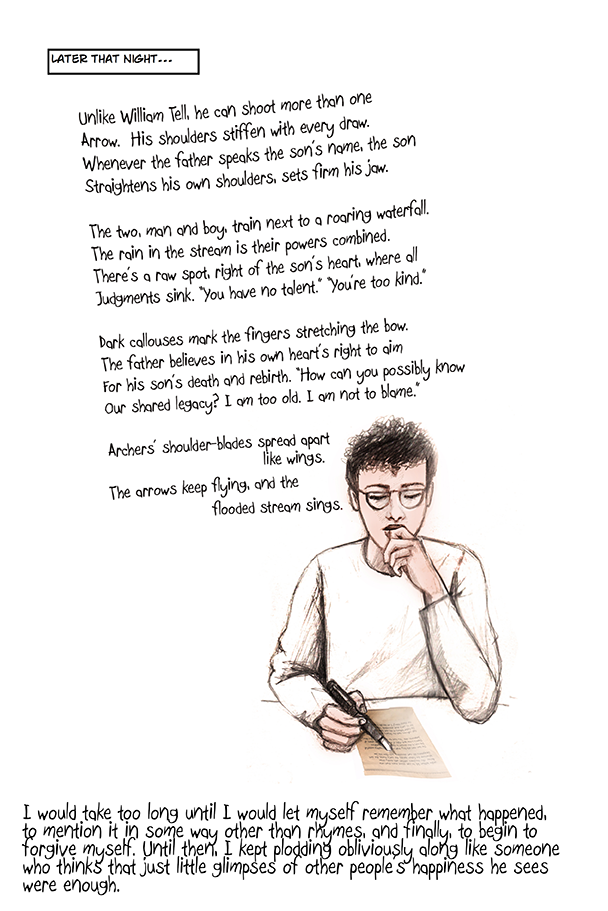 LATER THAT NIGHT...
Unlike William Tell, he can shoot more than one
Arrow. His shoulders stiffen with every draw.
Whenever the father speaks the son's name, the son
Straightens his own shoulders, sets firm his jaw.
The two, man and boy, train next to a roaring waterfall.
The rain in the stream is their powers combined.
There's a raw spot, right of the son's heart, where all
Judgments sink. "You have no talent." "You're too kind."
Dark callouses mark the fingers stretching the bow.
The father believes in his own heart's right to aim
For his son's death and rebirth. "How can you possibly know
Our shared legacy? I am too old. I am not to blame."
Archers' shoulder-blades spread apart
like wings.
The arrows keep flying, and the
flooded stream sings.
I would take too long until I would let myself remember what happened,
to mention it in some way other than rhymes, and finally, to begin to
forgive myself. Until then, I kept plodding obliviously along like someone
who thinks that just little glimpses of other people's happiness he sees
were enough.